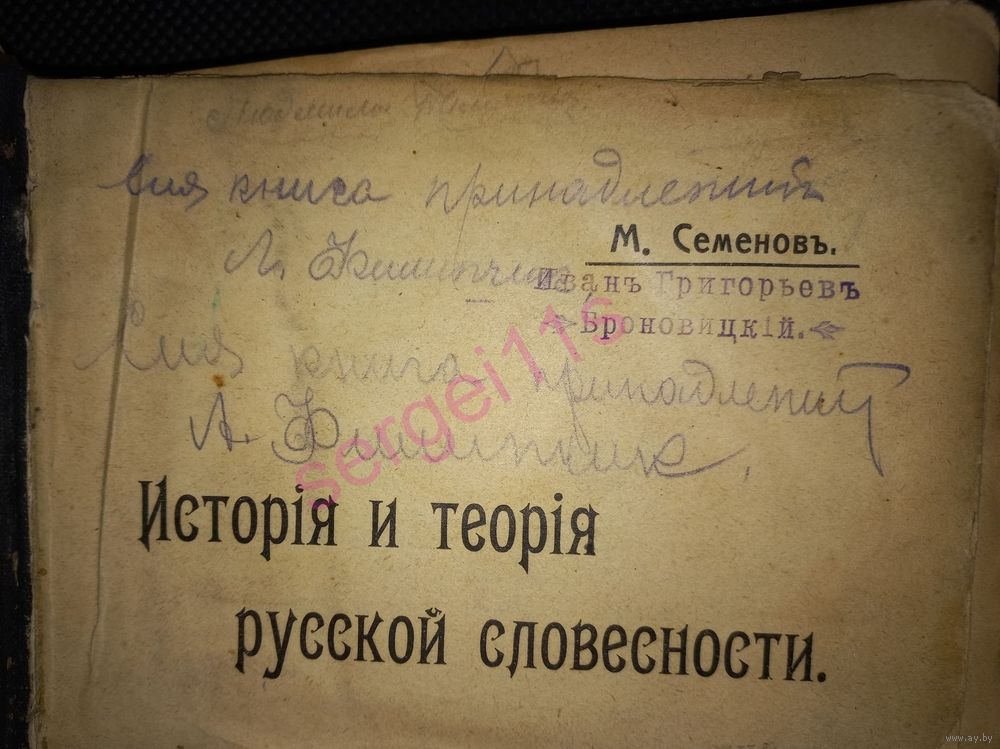 Людмила
Сия книга принадлежит
М. Семеновъ.
Л.
Иванъ Григорьевъ
Броновицкій.
Сия книга принадлежит
Л.
sergei11s
Исторія и теорія
русской словесности.
www.ay.by